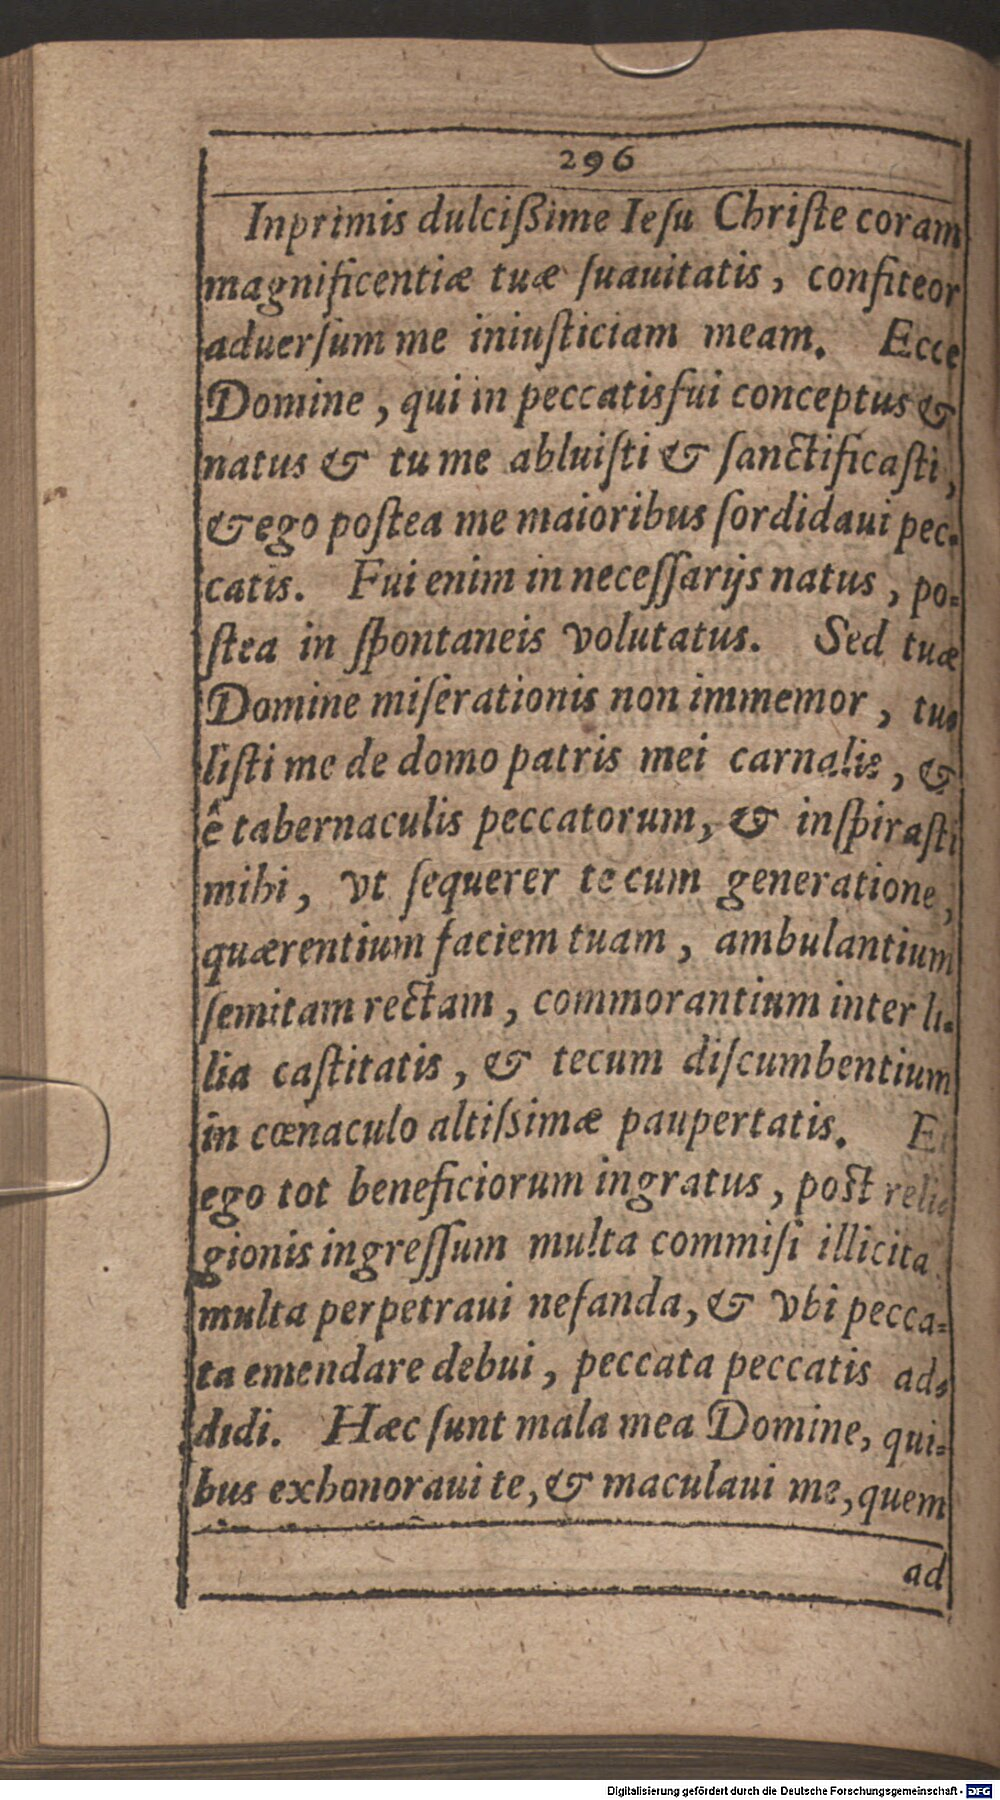 296
Inprimis dulcißime Ieſu Chriſte coram
magnificentiæ tuæ ſuauitatis, confiteor
aduerſum me iniuſticiam meam. Ecce
Domine, qui in peccatis fui conceptus &
natus & tu me abluiſti & ſanctificaſti,
& ego poſtea me maioribus ſordidaui pec-
catis. Fui enim in neceſſarijs natus, po-
ſtea in ſpontaneis volutatus. Sed tuæ
Domine miſerationis non immemor, tu-
liſti me de domo patris mei carnalis, &
ê tabernaculis peccatorum, & inſpiraſti
mihi, vt ſequerer te cum generatione,
quærentium faciem tuam, ambulantium
ſemitam rectam, commorantium inter li-
lia caſtitatis, & tecum diſcumbentium
in cœnaculo altiſsimæ paupertatis. Et
ego tot beneficiorum ingratus, poſt reli-
gionis ingreſſum multa commiſi illicita
multa perpetraui nefanda, & vbi pecca-
ta emendare debui, peccata peccatis ad-
didi. Hæc ſunt mala mea Domine, qui-
bus exhonoraui te, & maculaui me, quem
ad
Digitalisierung gefördert durch die Deutsche Forschungsgemeinschaft - DFG